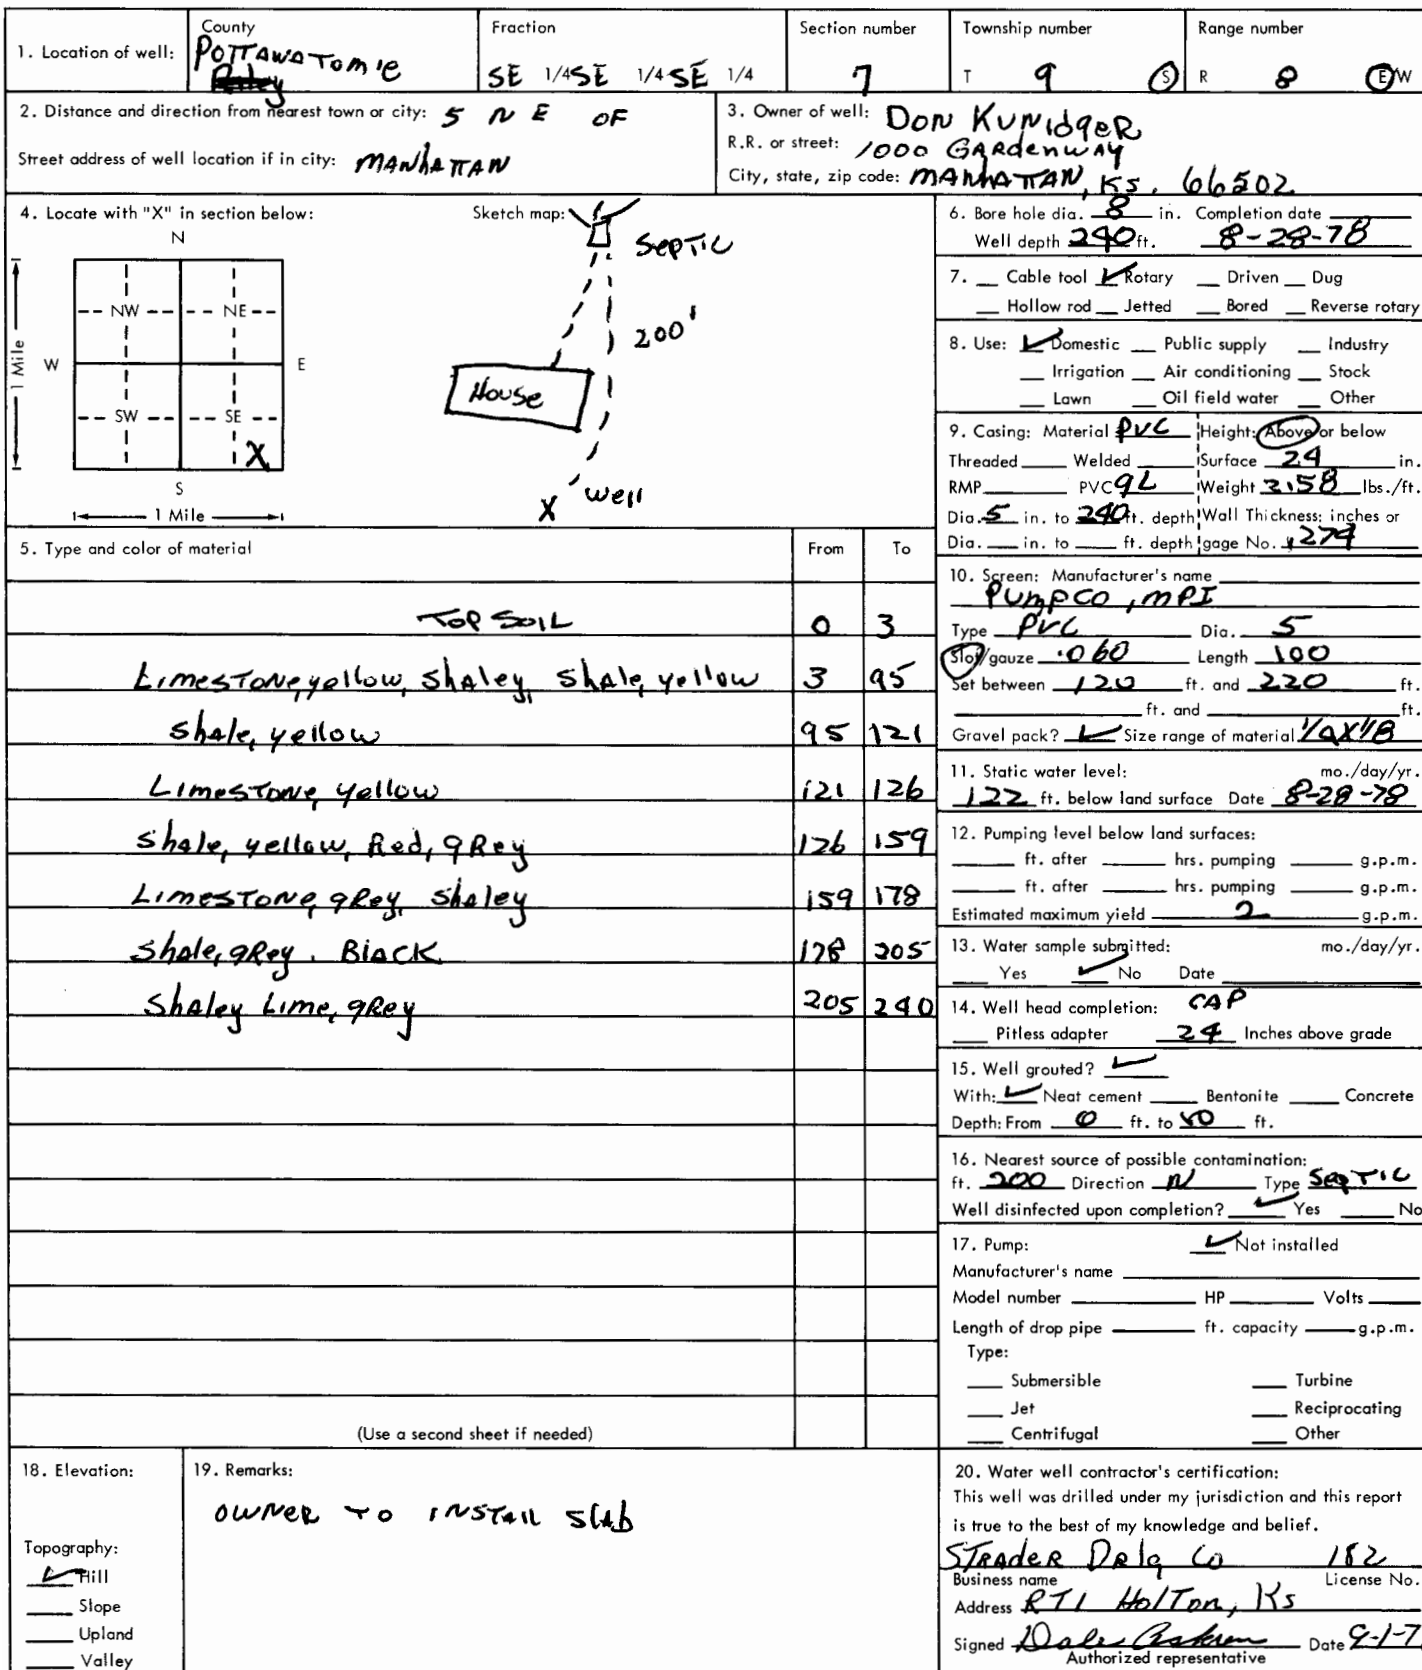 1. Location of well:
County
POTTAWATOMIE
Riley
Fraction
SE 1/4 SE 1/4 SE 1/4
Section number
7
Township number
T 9 S
Range number
R 8 E W
2. Distance and direction from nearest town or city: 5 N E OF
Street address of well location if in city: MANHATTAN
3. Owner of well: DON KUNIdgeR
R.R. or street: 1000 GARdenWAY
City, state, zip code: MANHATTAN, KS. 66502
4. Locate with "X" in section below:
N
NW NE
W E
SW SE
X
S
1 Mile
1 Mile
Sketch map:
SEPTIC
200'
House
X well
5. Type and color of material From To
TOP SOIL 0 3
LIMESTONE, yellow, ShAley, ShAle, yellow 3 95
Shale, yellow 95 121
LIMESTONE, yellow 121 126
Shale, yellow, Red, gRey 126 159
LIMESTONE, gRey, ShAley 159 178
ShAle, gRey. BlACK 178 205
ShAley Lime, gRey 205 240
(Use a second sheet if needed)
6. Bore hole dia. 8 in. Completion date
Well depth 240 ft. 8-28-78
7. Cable tool ✓ Rotary Driven Dug
Hollow rod Jetted Bored Reverse rotary
8. Use: ✓ Domestic Public supply Industry
Irrigation Air conditioning Stock
Lawn Oil field water Other
9. Casing: Material PVC Height: Above or below
Threaded Welded Surface 24 in.
RMP PVC GL Weight 2.58 lbs./ft.
Dia. 5 in. to 240 ft. depth Wall Thickness: inches or
Dia. in. to ft. depth gage No. .274
10. Screen: Manufacturer's name
PUMPCO, MPI
Type PVC Dia. 5
Slot/gauze .060 Length 100
Set between 120 ft. and 220 ft.
ft. and ft.
Gravel pack? ✓ Size range of material 1/4X1/8
11. Static water level: mo./day/yr.
122 ft. below land surface Date 8-28-78
12. Pumping level below land surfaces:
ft. after hrs. pumping g.p.m.
ft. after hrs. pumping g.p.m.
Estimated maximum yield 2 g.p.m.
13. Water sample submitted: mo./day/yr.
Yes ✓ No Date
14. Well head completion: CAP
Pitless adapter 24 Inches above grade
15. Well grouted? ✓
With: ✓ Neat cement Bentonite Concrete
Depth: From 0 ft. to 50 ft.
16. Nearest source of possible contamination:
ft. 200 Direction N Type SEPTIC
Well disinfected upon completion? ✓ Yes No
17. Pump: ✓ Not installed
Manufacturer's name
Model number HP Volts
Length of drop pipe ft. capacity g.p.m.
Type:
Submersible Turbine
Jet Reciprocating
Centrifugal Other
18. Elevation:
Topography:
✓ Hill
Slope
Upland
Valley
19. Remarks:
OWNER TO INSTALL SlAb
20. Water well contractor's certification:
This well was drilled under my jurisdiction and this report
is true to the best of my knowledge and belief.
STRADER DRlg Co 182
Business name License No.
Address RT1 HolTon, Ks
Signed Dale Date 9-1-7
Authorized representative